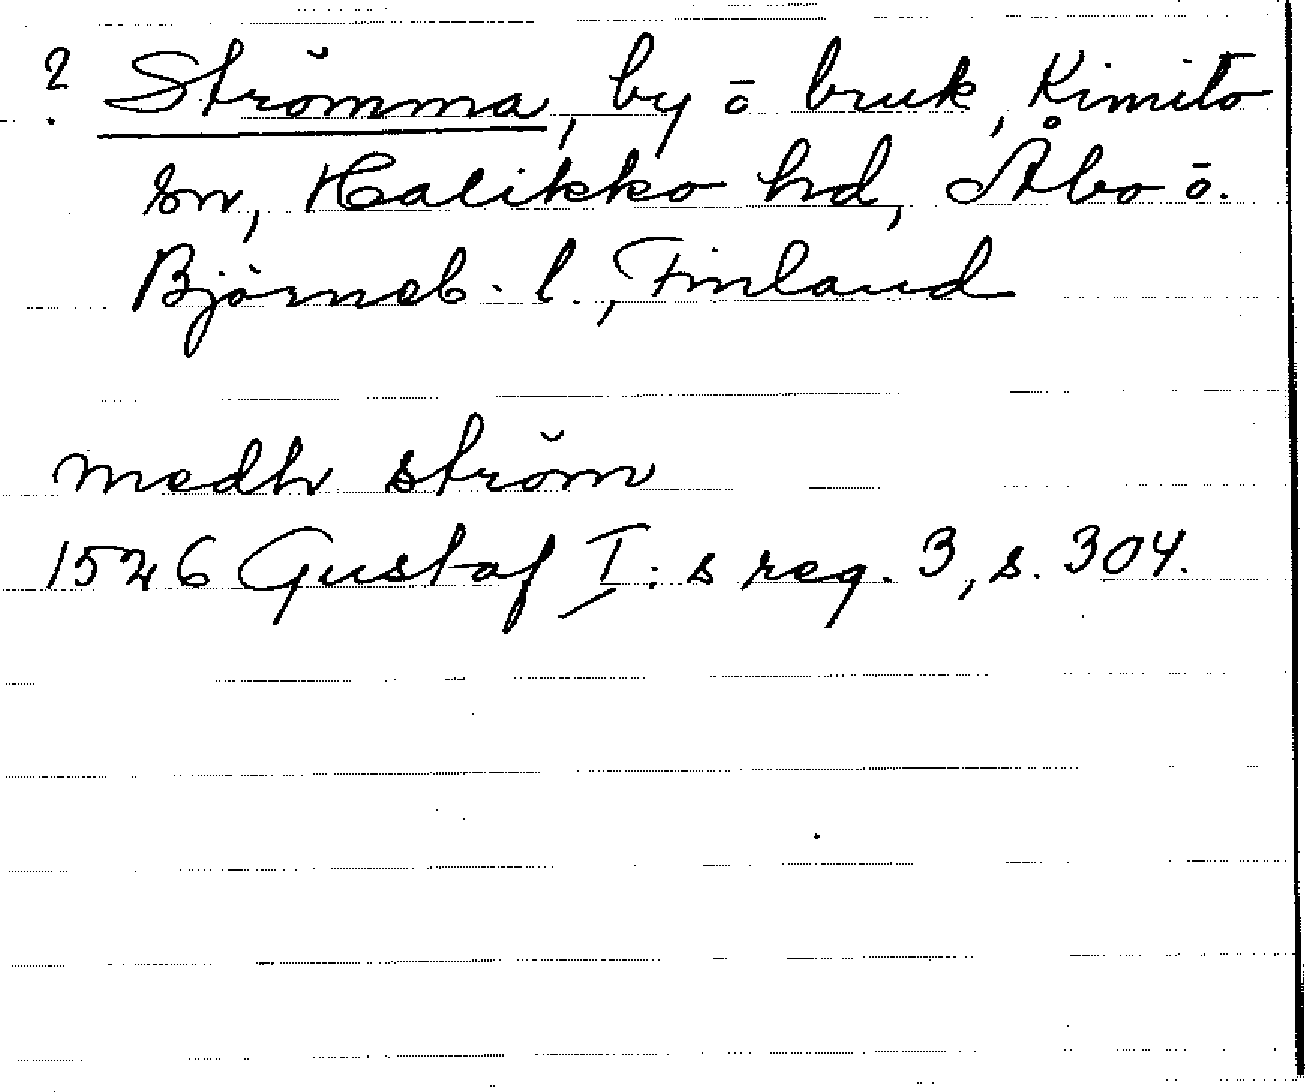 ? Strömma, by ō bruk, Kimito
sn, Halikko hd, Åbo ō.
Björneb. l., Finland
medh ström
1526 Gustaf I:s reg. 3, s. 304.